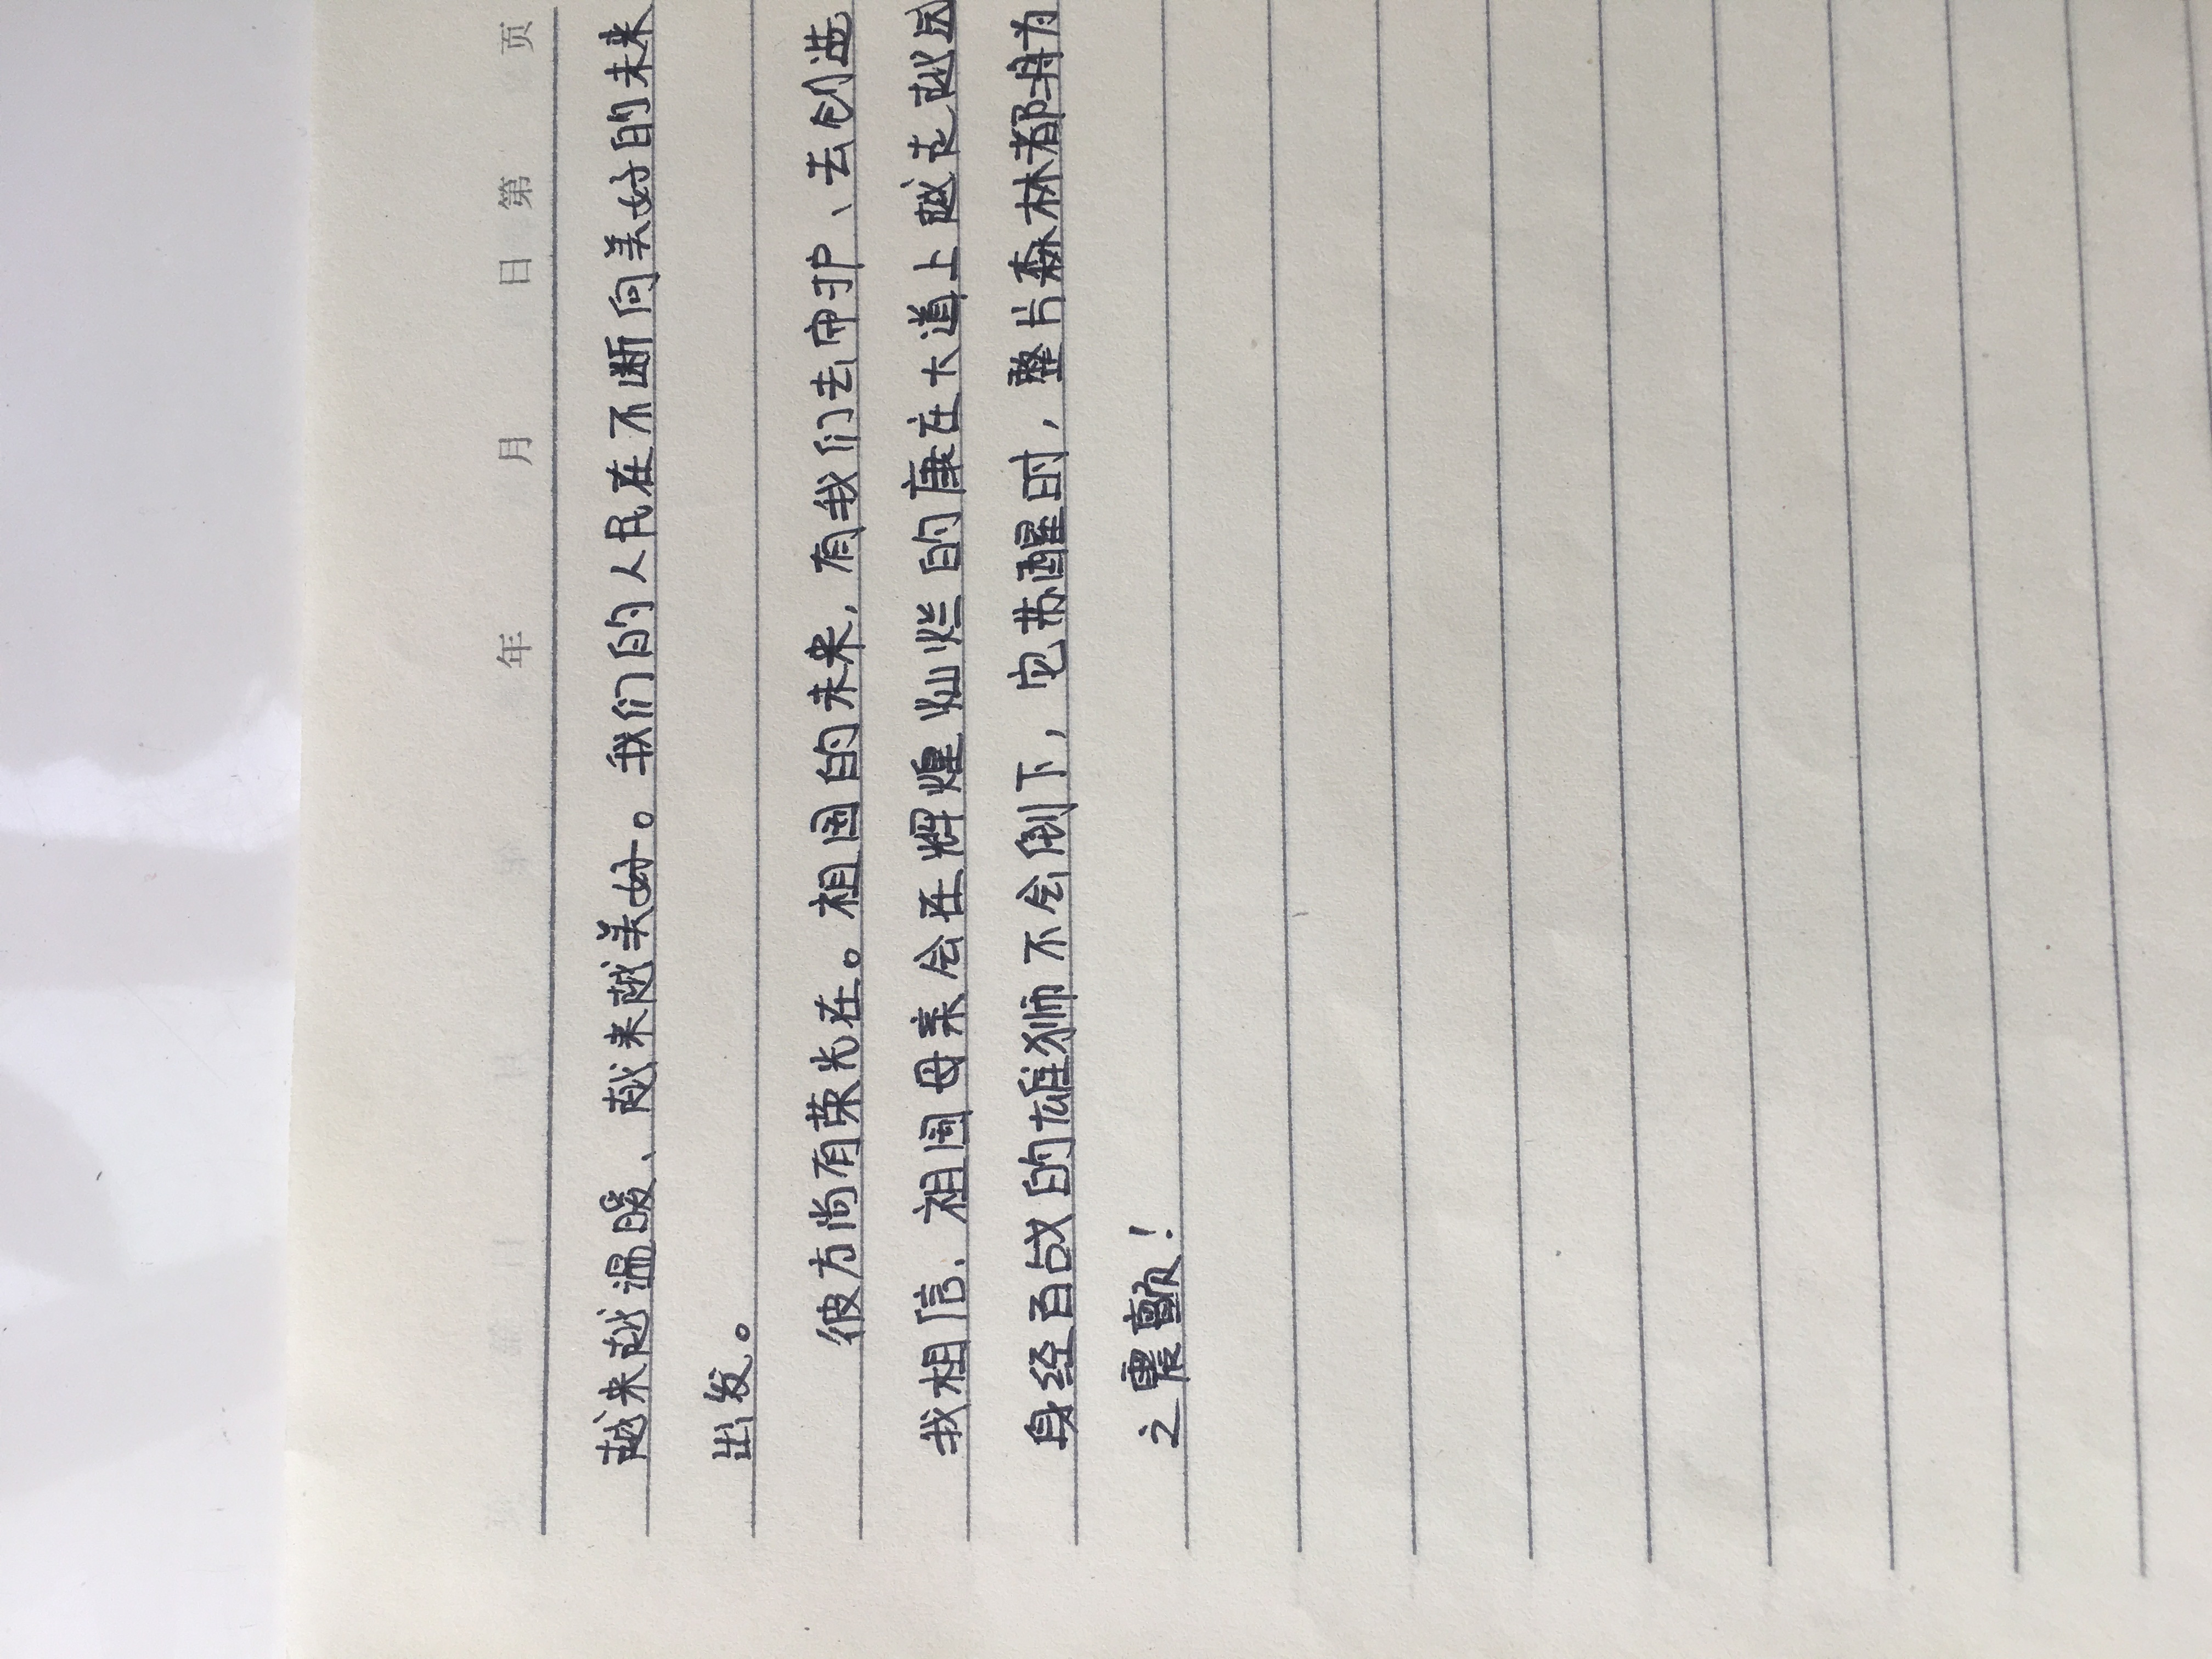 年 月 日 第 页
越来越温暖、越来越美好。我们的人民在不断向美好的未来
出发。
彼方尚有荣光在。祖国的未来，有我们去守护、去创造
我相信，祖国母亲会在辉煌灿烂的康在大道上越走越远
身经百战的雄狮不会倒下，它苏醒时，整片森林都将为
之震颤！